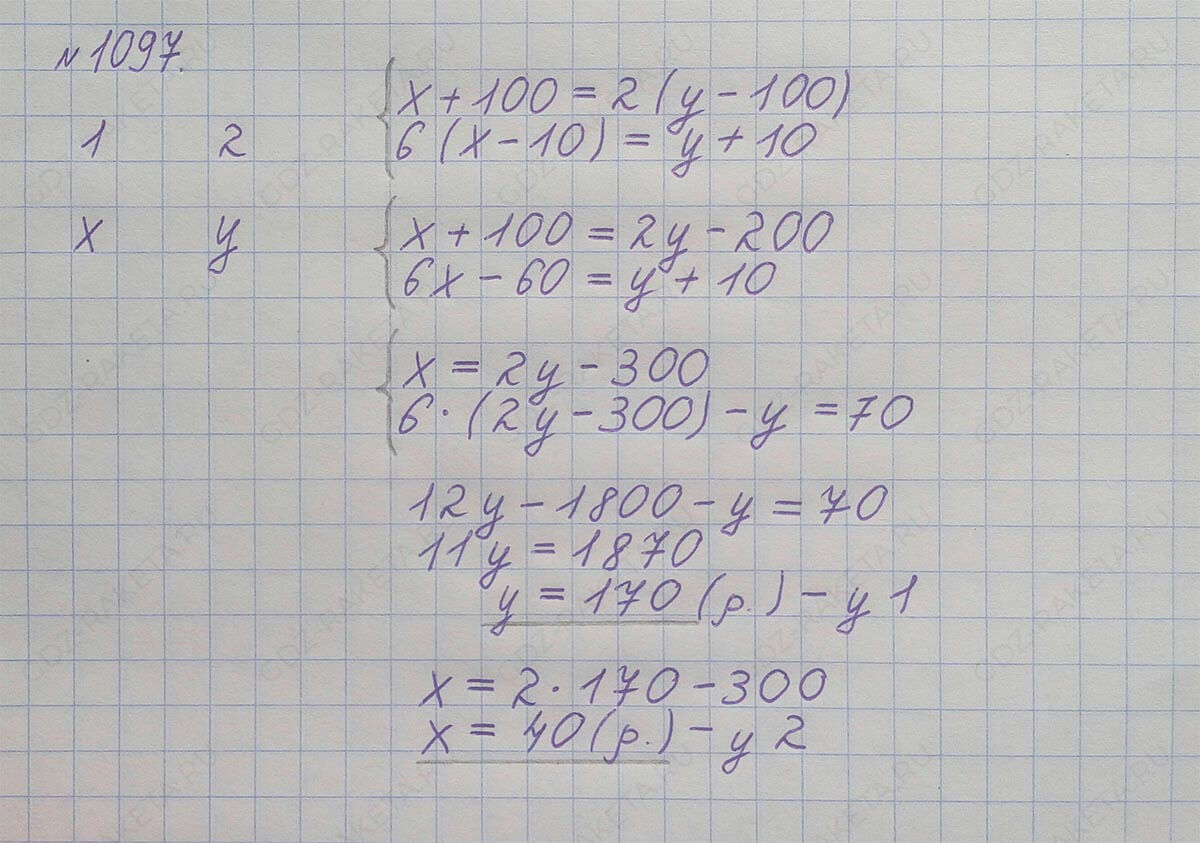 №1097.
x + 100 = 2 (y - 100)
1 2
6 (x - 10) = y + 10
x y
x + 100 = 2y - 200
6x - 60 = y + 10
x = 2y - 300
6 · (2y - 300) - y = 70
12y - 1800 - y = 70
11y = 1870
y = 170 (р.) - у 1
x = 2 · 170 - 300
x = 40 (р.) - у 2
GDZ-RAKETA.RU